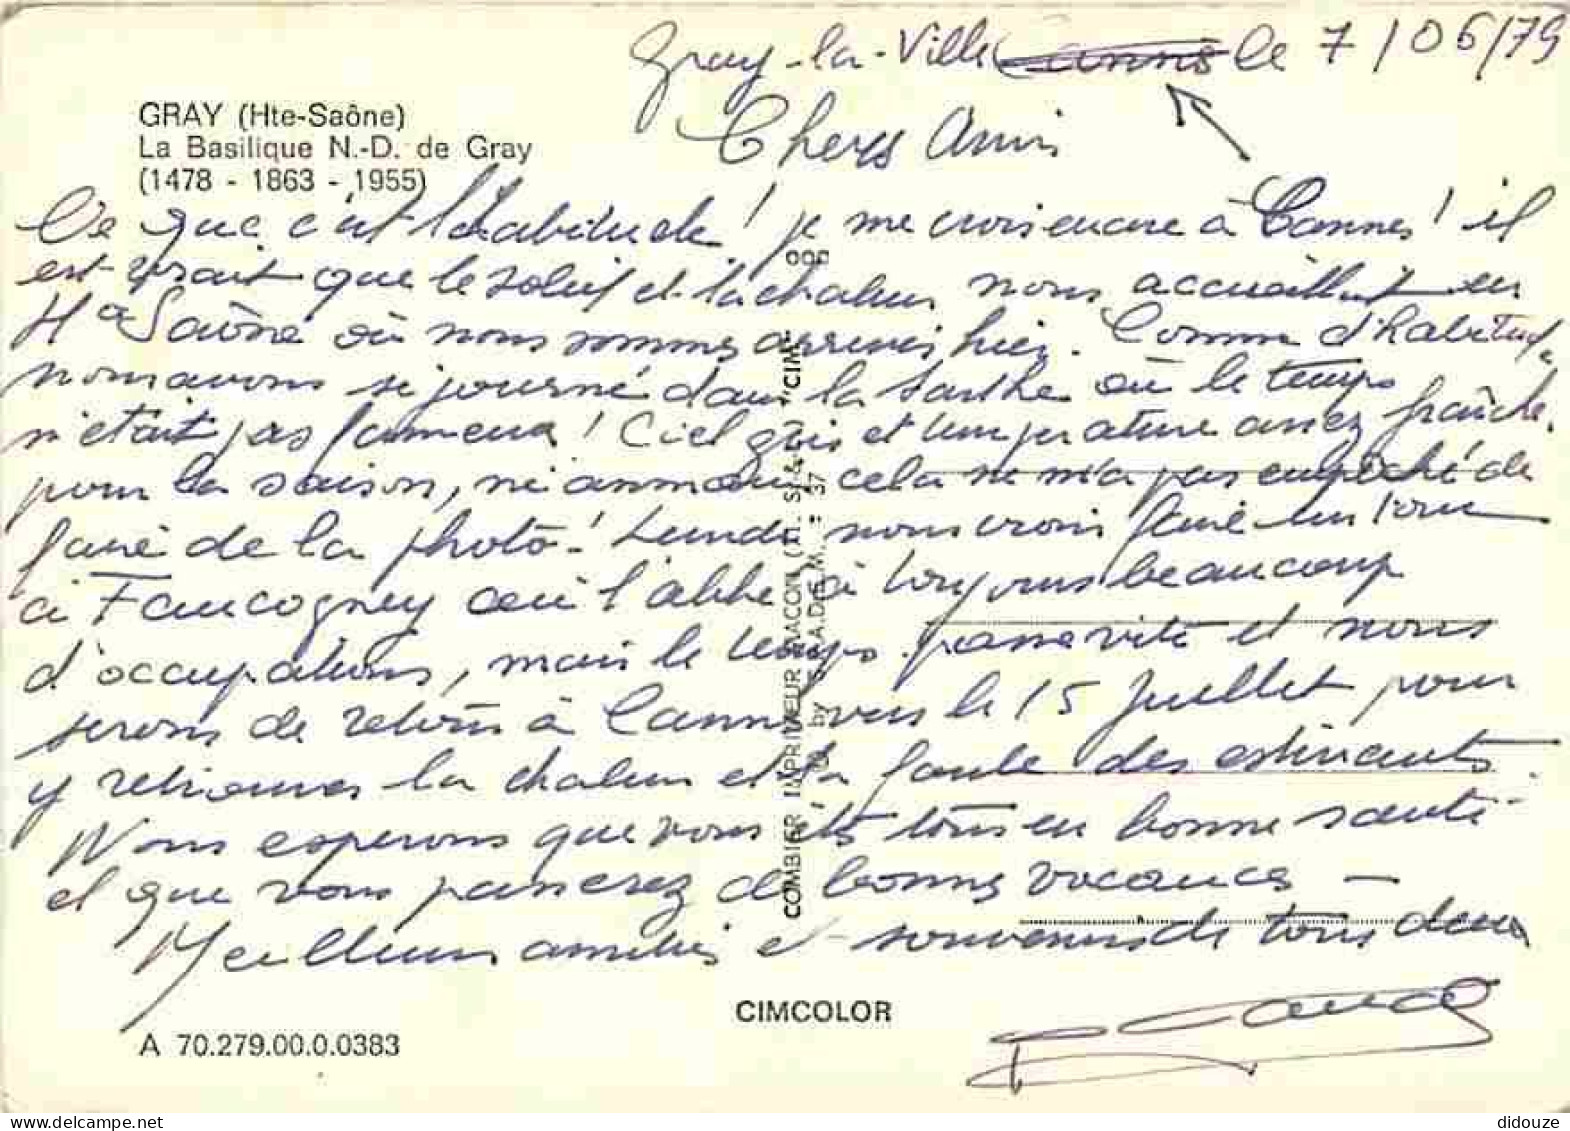 Gray-la-Ville Cannes le 7/06/79
GRAY (Hte-Saône)
La Basilique N.-D. de Gray
(1478 - 1863 - 1955)
Chers Amis
Ce que c'est l'habitude! je me crois encore à Cannes! il
est vrait que le soleil et la chaleur nous accueillent en
Hte Saône où nous sommes arrivés hier. Comme d'habitude
nous avons séjourné dans la Sarthe où le temps
n'était pas fameux! Ciel gris et température assez fraîche
pour la saison, néanmoins cela ne m'a pas empêché de
faire de la photo! Lundi nous irons faire un tour
à Faucogney où l'abbé à toujours beaucoup
d'occupations, mais le temps passe vite et nous
serons de retour à Cannes vers le 15 Juillet pour
y retrouver la chaleur et la foule des estivants.
Nous esperons que vous êtes tous en bonne santé
et que vous passerez de bonnes vacances -
Meilleures amitiés et souvenirs de tous deux
COMBIER IMPRIMEUR MACON (71. S.&L.) "CIM"
by S.P.A.D.E.M. = 37
CIMCOLOR
A 70.279.00.0.0383
didouze